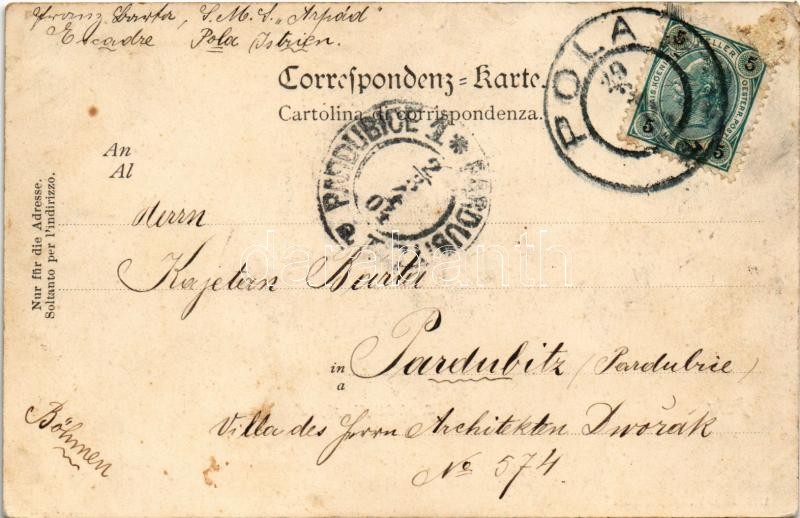 Franz Barta, S.M.S. „Arpád"
Escadre Pola Istrien.
Correspondenz=Karte.
Cartolina di corrispondenza.
POLA
29
5 HELLER 5
5 5
PARDUBICE 1 * PARDUBITZ
2
04
An
Al
Herrn
Kajetan Barta
in
a
Pardubitz (Pardubice)
Villa des Herrn Architekten Dwořák
No 574
Böhmen
Nur für die Adresse.
Soltanto per l'indirizzo.
darabanth